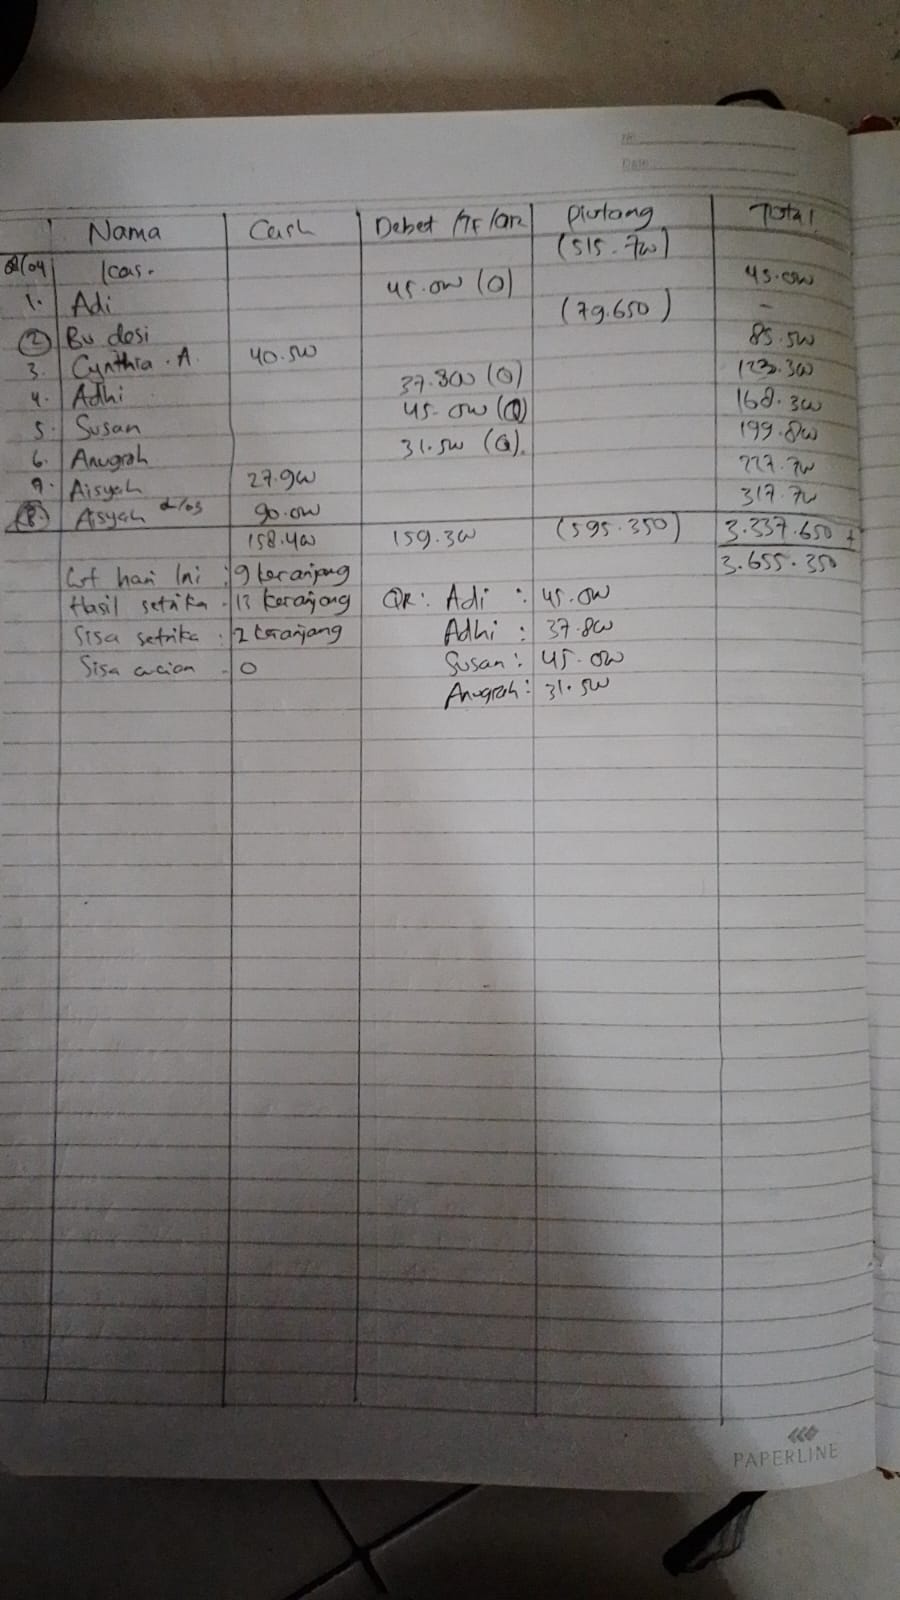 No.
Date
Nama Cash Debet /TF/QR Piutang Total
02/04 Kas. (515.700)
1. Adi 45.000 (Q) 45.000
2 Bu desi (79.650) -
3. Cynthia . A. 40.500 85.500
4. Adhi 37.800 (Q) 123.300
5. Susan 45.000 (Q) 168.300
6. Anugrah 31.500 (Q). 199.800
7. Aisyah 27.900 227.700
8 Aisyah 2/03 90.000 317.700
158.400 159.300 (595.350) 3.337.650 +
3.655.350
hari Ini : 9 keranjang
Hasil setrika : 13 keranjang QR : Adi : 45.000
Sisa setrika : 2 keranjang Adhi : 37.800
Sisa cucian : 0 Susan : 45.000
Anugrah : 31.500
PAPERLINE